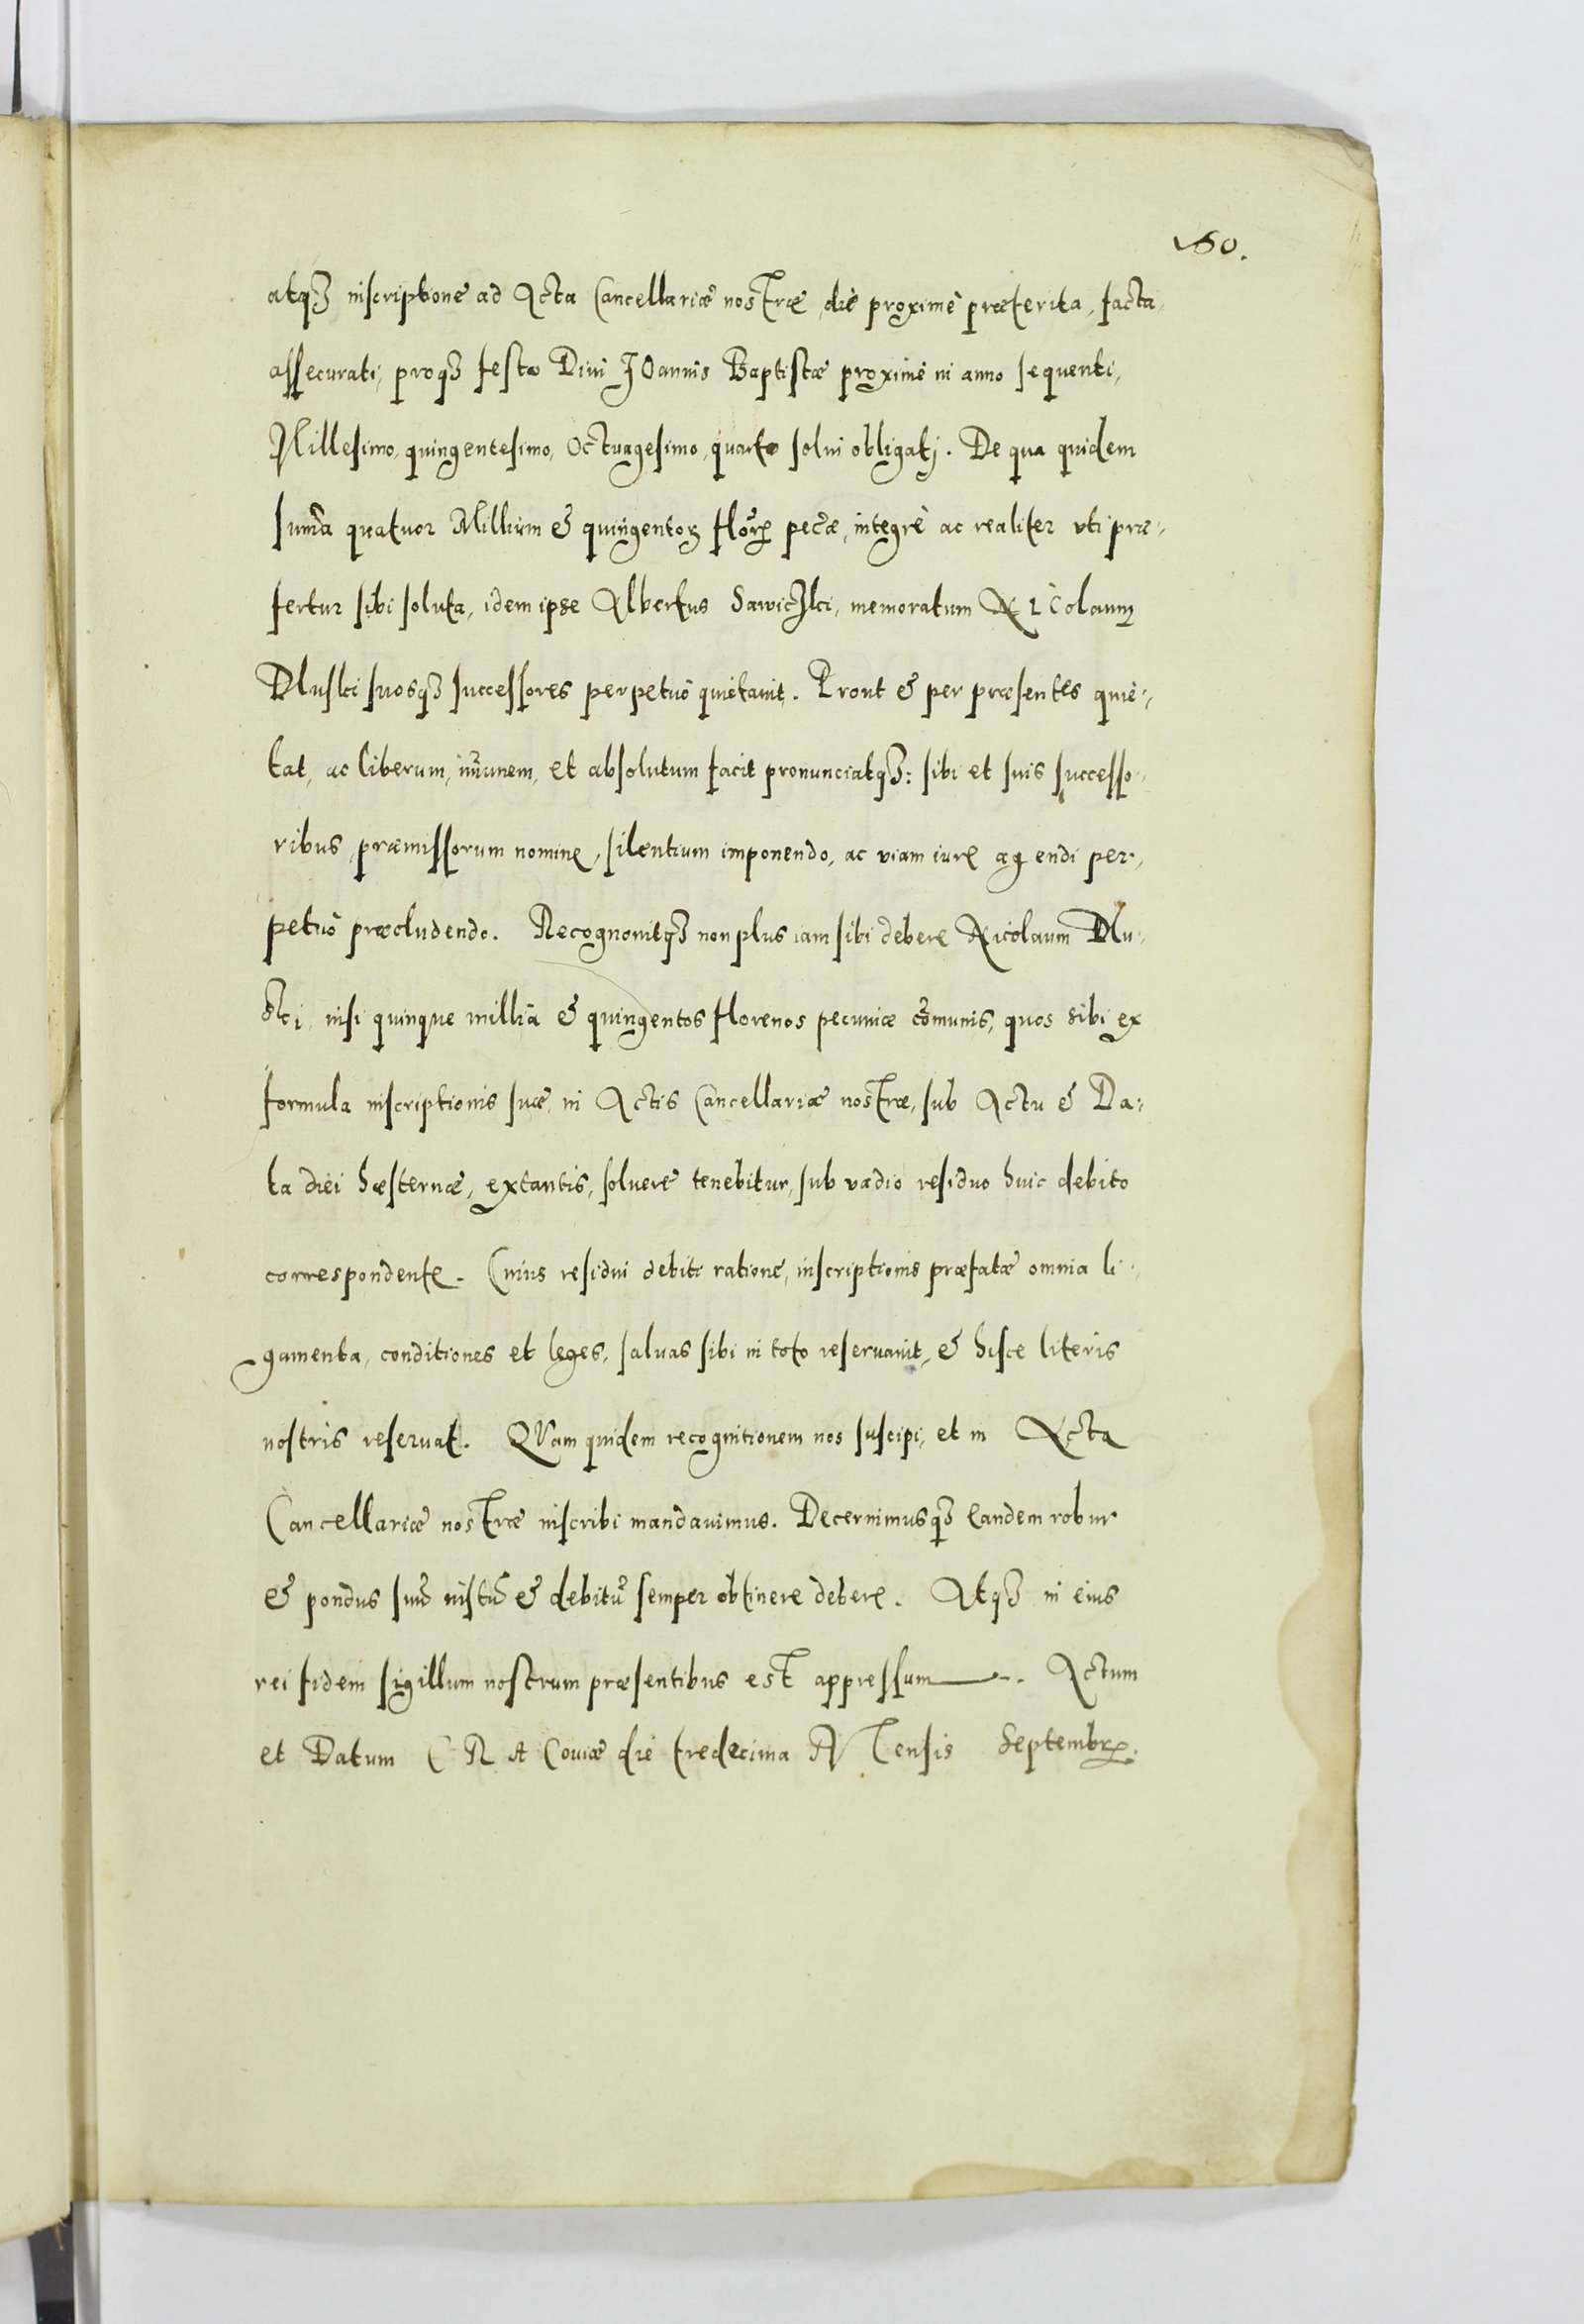 160.
atq3 inscriptione ad Acta Cancellariæ nostræ, die proximè præterita, facta
assecurati, proq3 festo Diui IOannis Baptistæ proximè in anno sequenti,
Millesimo, quingentesimo, Octuagesimo, quarto solui obligatj. De qua quidem
suma quatuor Millium & quingentoꝝ floꝝ pecæ, integrè ac realiter vti præ-
fertur sibi soluta, idem ipse Albertus Sawiczki, memoratum NIColaum
Dluski suosq3 successores perpetuò quietauit. Prout & per præsentes quie-
tat, ac liberum, imunem, et absolutum facit pronunciatq3: sibi et suis successo-
ribus præmissorum nomine, silentium imponendo, ac viam iure agendi per-
petuò præcludendo. Recognouitq3 non plus iam sibi debere Nicolaum Dlu-
ski, nisi quinque millia & quingentos florenos pecuniæ comunis, quos sibi ex
formula inscriptionis suæ, in Actis Cancellariæ nostræ, sub Actu & Da-
ta diei hæsternæ, extantis, soluere tenebitur, sub vadio residuo huic debito
correspondente. Cuius residui debiti ratione, inscriptionis præfatæ omnia li-
gamenta, conditiones et leges, saluas sibi in toto reseruauit, & hisce literis
nostris reseruat. QVam quidem recognitionem nos suscipi, et in Acta
Cancellariæ nostræ inscribi mandauimus. Decernimusq3 eandem robur
& pondus suũ iustũ & debitũ semper obtinere debere. Atq3 in eius
rei fidem sigillum nostrum præsentibus est appressum. Actum
et Datum CRACouiæ die tredecima MEnsis Septembꝝ.